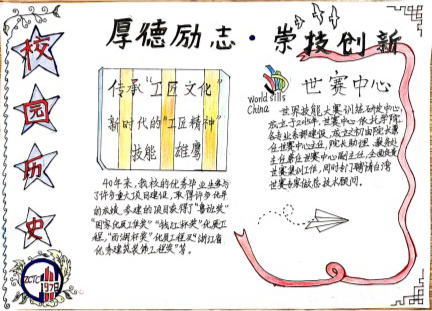 厚德励志·崇技创新
校
园
历
史
传承"工匠文化"
新时代的"工匠精神"
技能 雄鹰
40年来,我校的优秀毕业生参与
了许多重大项目建设,取得许多优异
的成绩,参建的项目获得了"鲁班奖"
"国家优质工程奖""钱江杯奖"优质工
程,"西湖杯奖"优质工程及"浙江省
优秀建筑装饰工程奖"等。
worldskills
China
世赛中心
世界技能大赛训练研究中心,
成立于2015年,世中心依托学院
各专业系部建设,成立之初由院长兼
任世赛中心主任,院长助理、教务处
主任兼任世赛中心副主任,全面负责
世赛集训工作,同时专门聘请台湾
世赛专家做总技术顾问。
ZCTC
1978